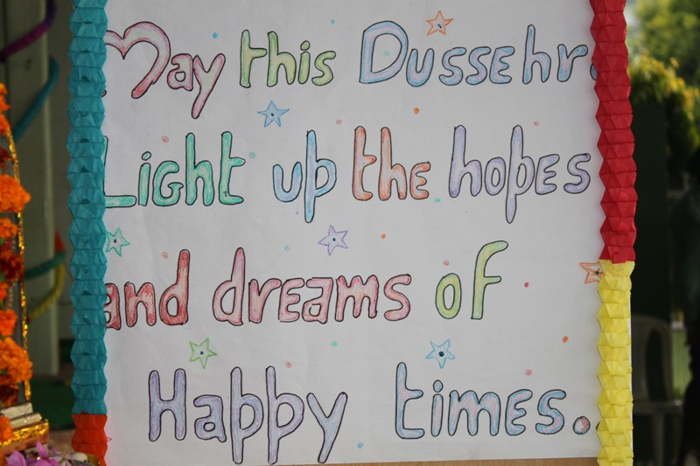 May this Dussehra
Light up the hopes
and dreams of
Happy times..